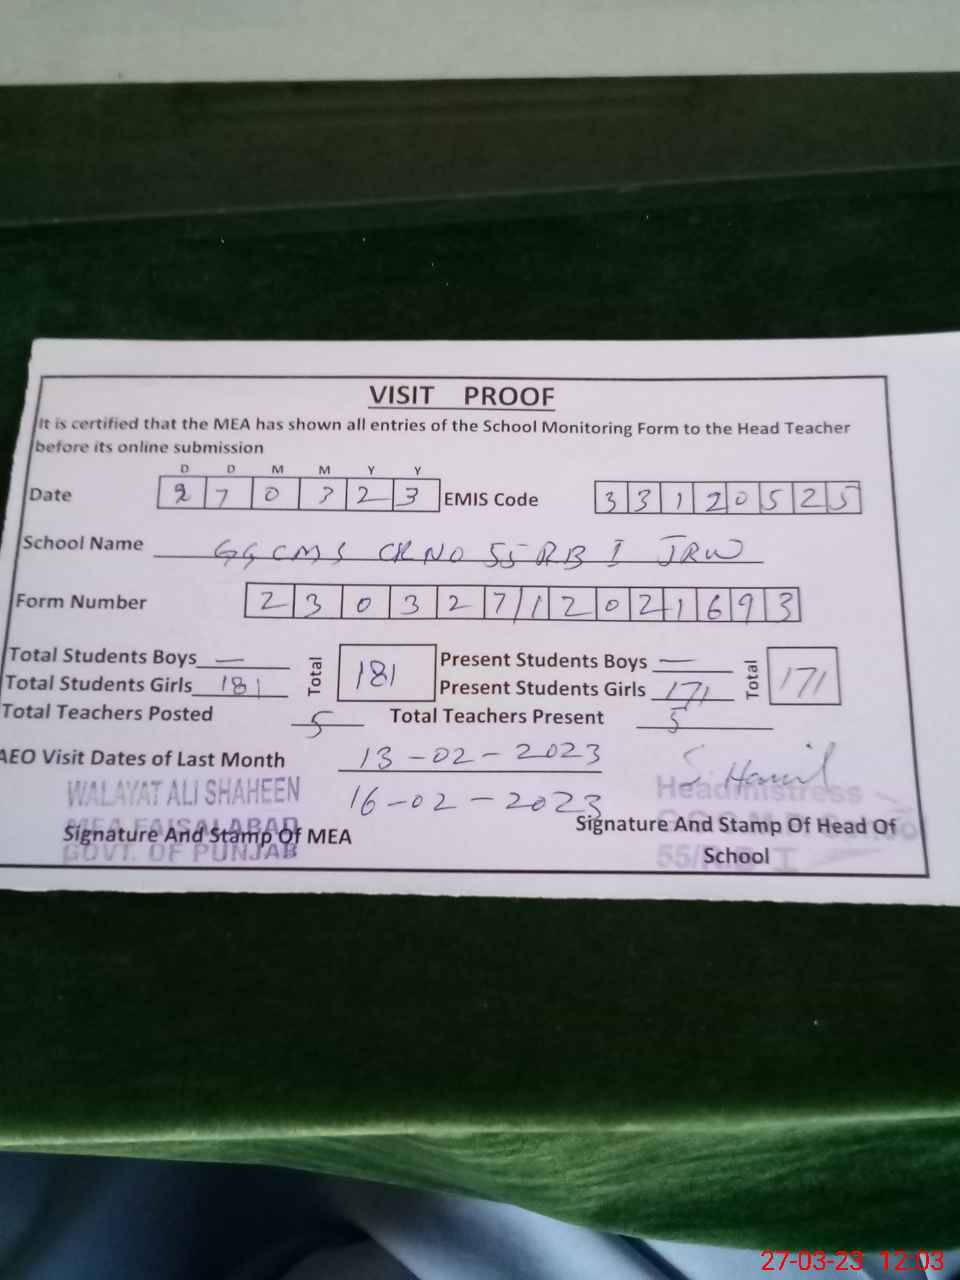 VISIT PROOF
It is certified that the MEA has shown all entries of the School Monitoring Form to the Head Teacher
before its online submission
D D M M Y Y
Date 2 7 0 3 2 3 EMIS Code 3 3 1 2 0 5 2 5
School Name GGCMS CK NO 55 RB I JRW
Form Number 2 3 0 3 2 7 1 2 0 2 1 6 9 3
Total Students Boys — Total 181 Present Students Boys — Total 171
Total Students Girls 181 Present Students Girls 171
Total Teachers Posted 5 Total Teachers Present 5
AEO Visit Dates of Last Month 13-02-2023
WALAYAT ALI SHAHEEN 16-02-2023 Headmistress
MEA FAISALABAD
Signature And Stamp Of MEA Signature And Stamp Of Head Of
GOVT. OF PUNJAB School
27-03-23 12:03